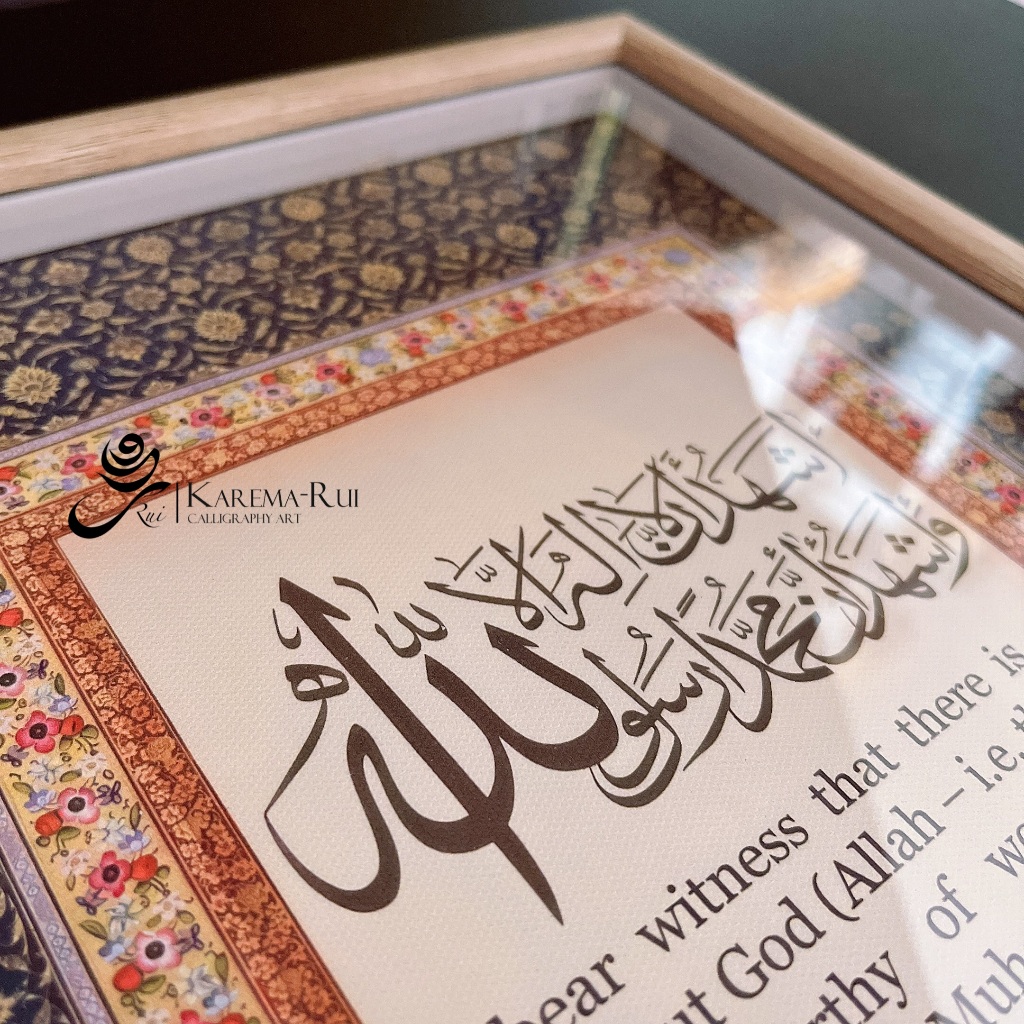 Rui | KAREMA-RUI
CALLIGRAPHY ART
أَشْهَدُ أَنْ لَا إِلٰهَ إِلَّا اللّٰه
وَأَشْهَدُ أَنَّ مُحَمَّدًا رَسُولُ
bear witness that there is
God (Allah – i.e.
of